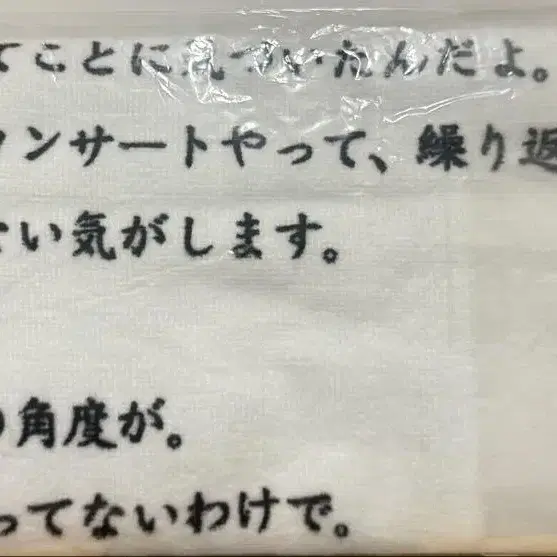 てことに気づいたんだよ。
ンサートやって、繰り返
い気がします。
角度が。
ってないわけで。